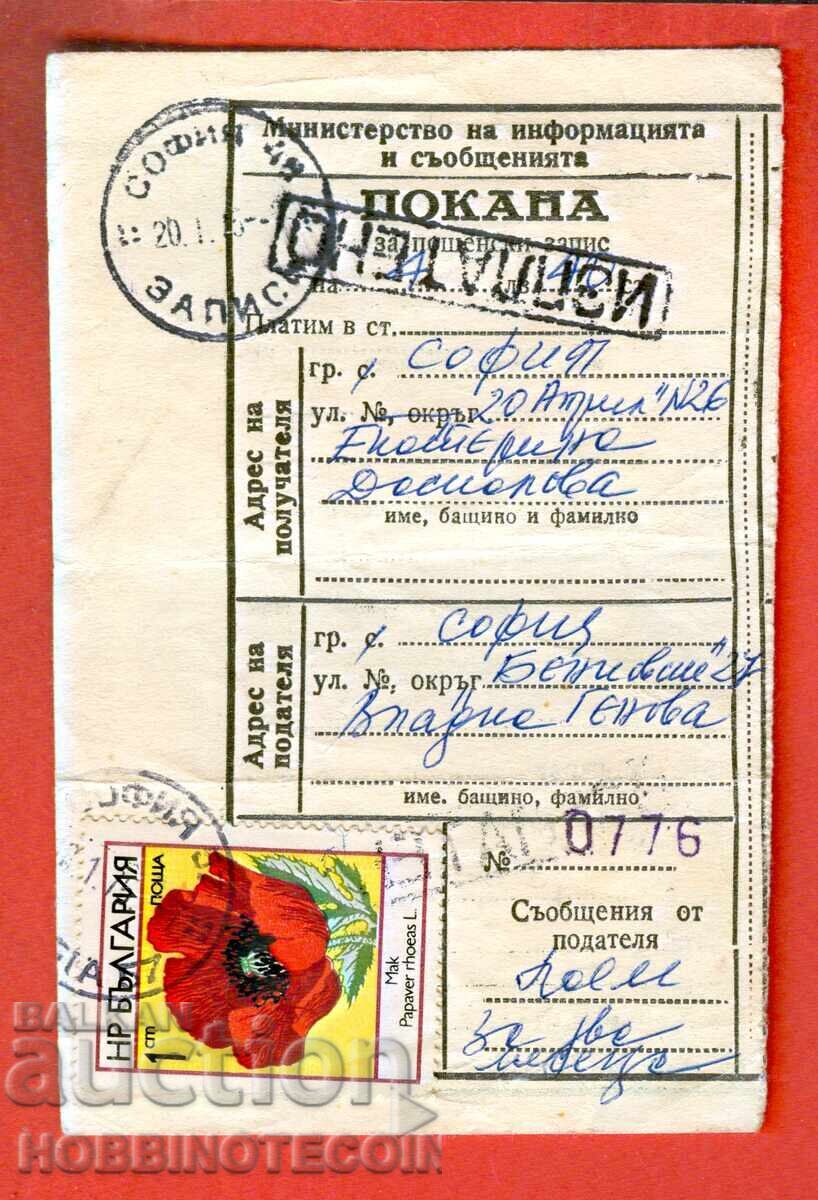 Министерство на информацията
и съобщенията
ПОКАНА
за пощенски запис
ИЗПЛАТЕНО
на 24 лв
Платим в ст.
СОФИЯ 48
20.1.
ЗАПИСИ
Адрес на
получателя
гр. с. СОФИЯ
ул. №, окръг 20 Април" N26
Екатерина
име, бащино и фамилно
Адрес на
подателя
гр. с. София
ул. №, окръг
Генова
име. бащино, фамилно
№ 0776
Съобщения от
подателя
Наем
за два
месеца
НР БЪЛГАРИЯ
ПОЩА
1 cm
Мак
Papaver rhoeas L.
BALKAN
auction
HOBBINOTECOIN